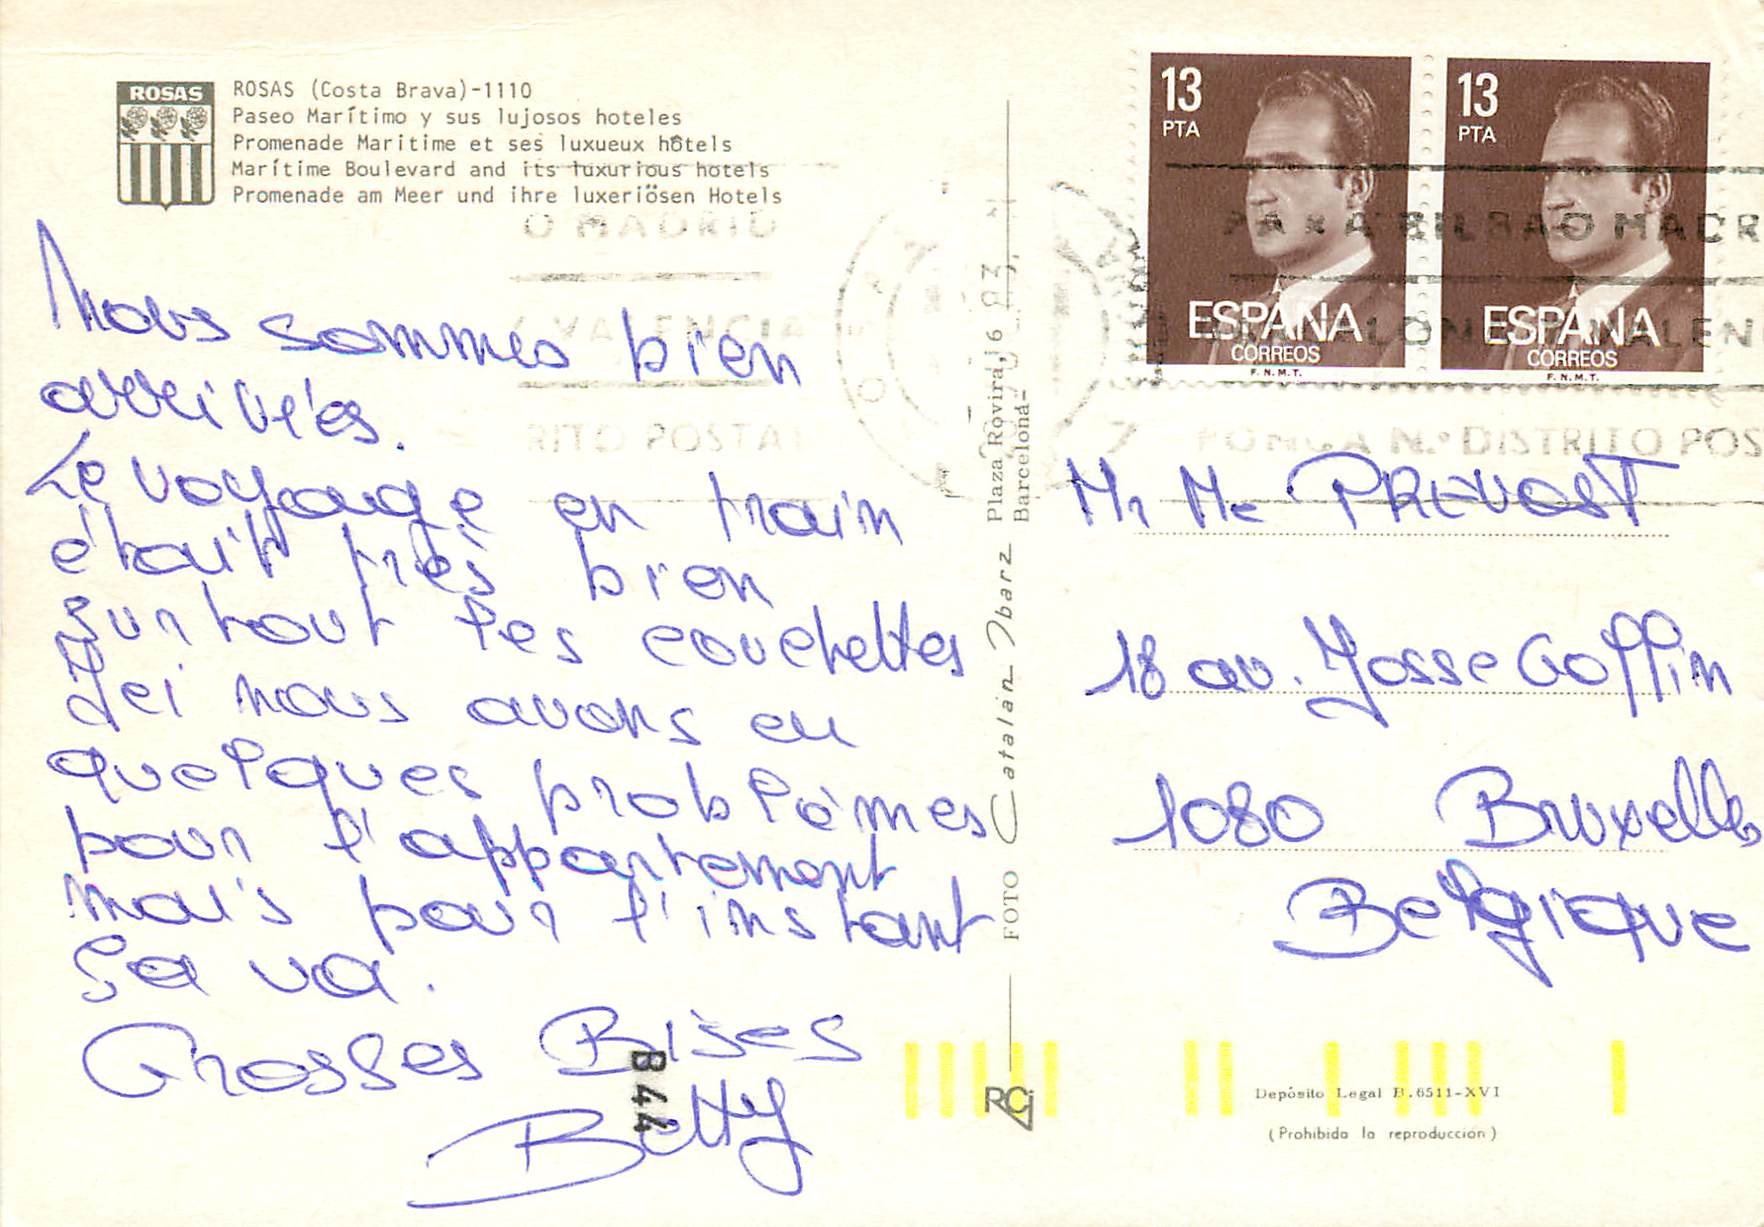 ROSAS
ROSAS (Costa Brava)-1110
Paseo Marítimo y sus lujosos hoteles
Promenade Maritime et ses luxueux hôtels
Marítime Boulevard and its luxurious hotels
Promenade am Meer und ihre luxeriösen Hotels
Nous sommes bien
arrivés.
Le voyage en train
était très bien
surtout les couchettes
Ici nous avons eu
quelques problèmes
pour l'appartement
mais pour l'instant
ça va.
Grosses Bises
Betty
B44
FOTO Catalán Ibarz Plaza Rovira, 6
Barcelona-
RCj
13
PTA
ESPAÑA
CORREOS
F.N.M.T.
13
PTA
ESPAÑA
CORREOS
F.N.M.T.
O MADRID
VALENCIA
RITO POSTAL
PARA BILBAO MADR
VALEN
PONGA N.º DISTRITO POS
Mr Me PREVOST
18 av. Josse Goffin
1080 Bruxelles
Belgique
Depósito Legal B.6511-XVI
(Prohibida la reproducción)